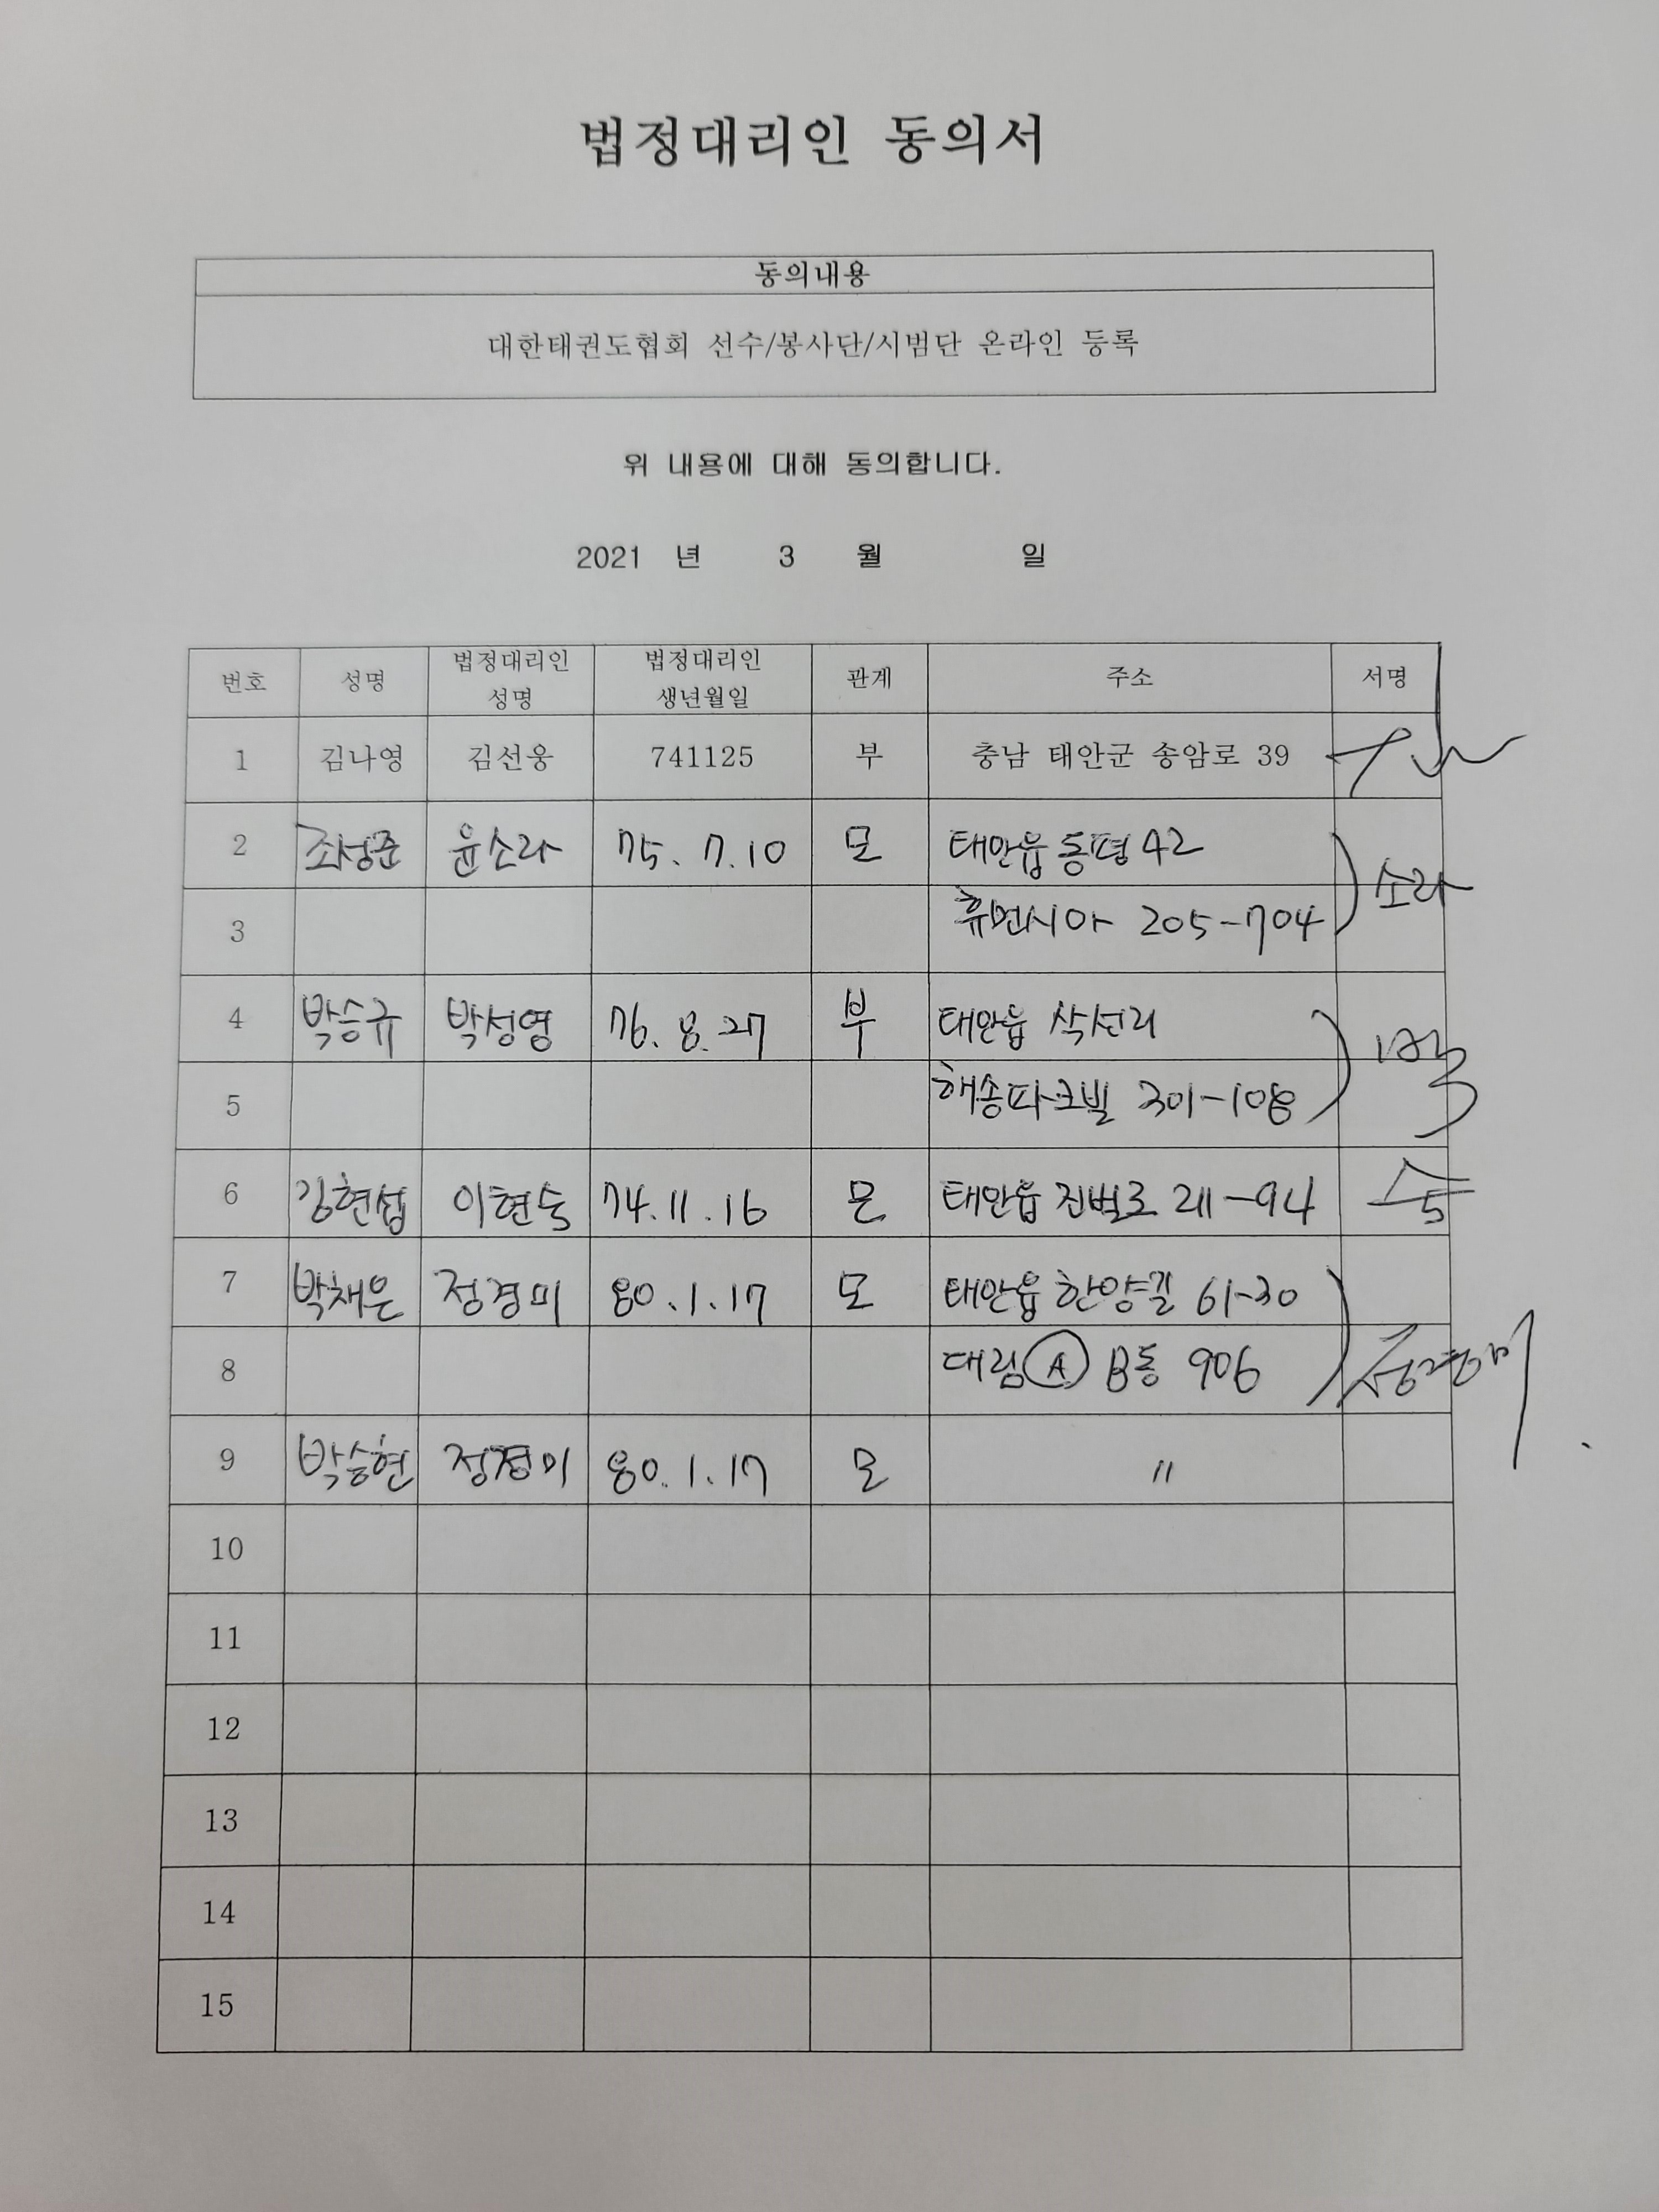 법정대리인 동의서
동의내용
대한태권도협회 선수/봉사단/시범단 온라인 등록
위 내용에 대해 동의합니다.
2021 년 3 월 일
번호 성명 법정대리인 성명 법정대리인 생년월일 관계 주소 서명
1 김나영 김선웅 741125 부 충남 태안군 송암로 39
2 조성준 윤소라 75.7.10 모 태안읍 동평 42
3 휴먼시아 205-704 소라
4 박승규 박성영 76.8.27 부 태안읍 삭선리
5 해송파크빌 301-108
6 김현섭 이현숙 74.11.16 모 태안읍 진벌로 211-94 숙
7 박채은 정경미 80.1.17 모 태안읍 한양길 61-30
8 대림 A B동 906 정경미
9 박승현 정경미 80.1.17 모 〃
10
11
12
13
14
15